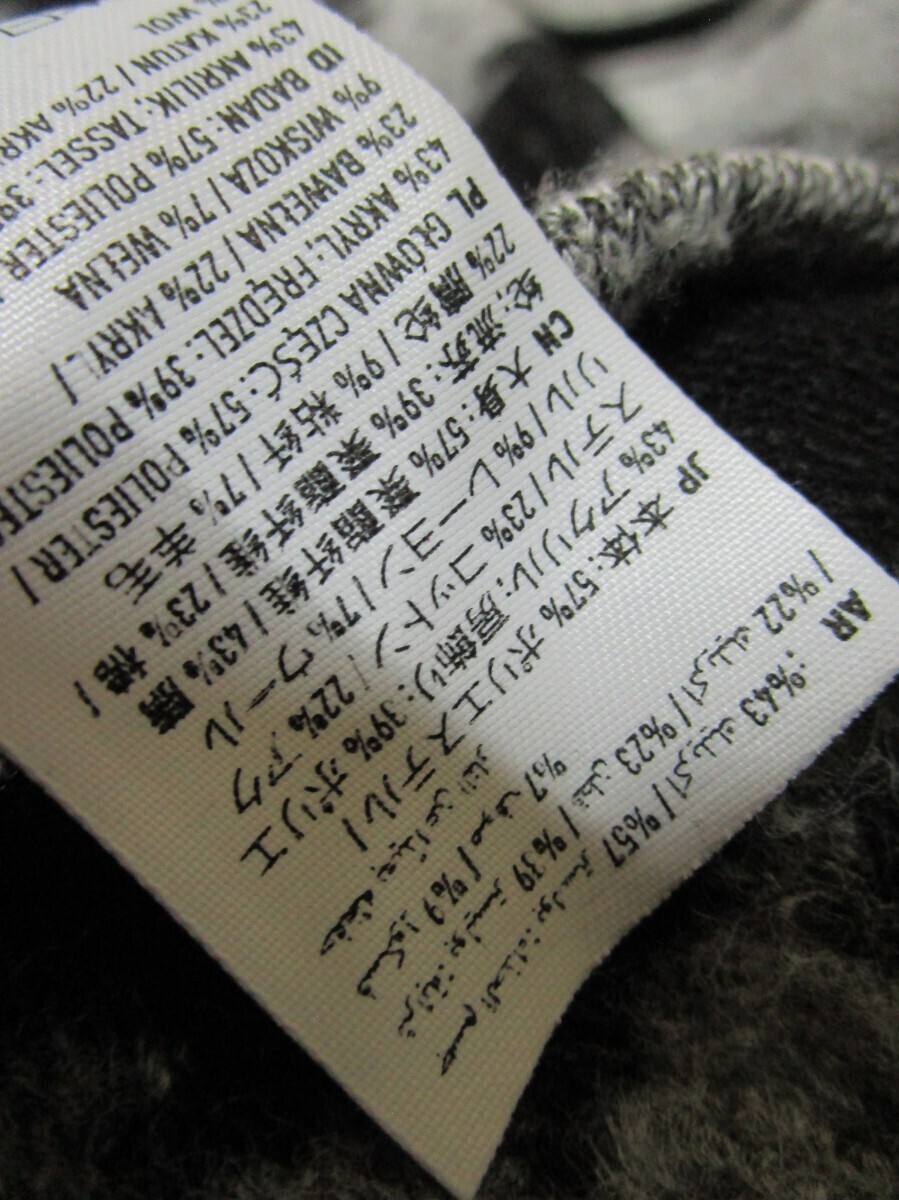 AR
بوليستر 57% / أكريليك 43%.
شرابة: بوليستر 39% / قطن 23% / أكريليك 22% /
فسكوز 9% / صوف 7%
بعيدًا عن النار
JP 本体: 57% ポリエステル /
43% アクリル; 房飾り: 39% ポリエ
ステル / 23% コットン / 22% アク
リル / 9% レーヨン / 7% ウール
CH 大身: 57% 聚酯纤维 / 43% 腈
纶; 流苏: 39% 聚酯纤维 / 23% 棉 /
22% 腈纶 / 9% 粘纤 / 7% 羊毛
PL GŁÓWNA CZĘŚĆ: 57% POLIESTER /
43% AKRYL; FRĘDZEL: 39% POLIESTE
23% BAWEŁNA / 22% AKRYL /
9% WISKOZA / 7% WEŁNA
ID BADAN: 57% POLIESTER
43% AKRILIK; TASSEL: 39
23% KATUN / 22% AKR
% WOL